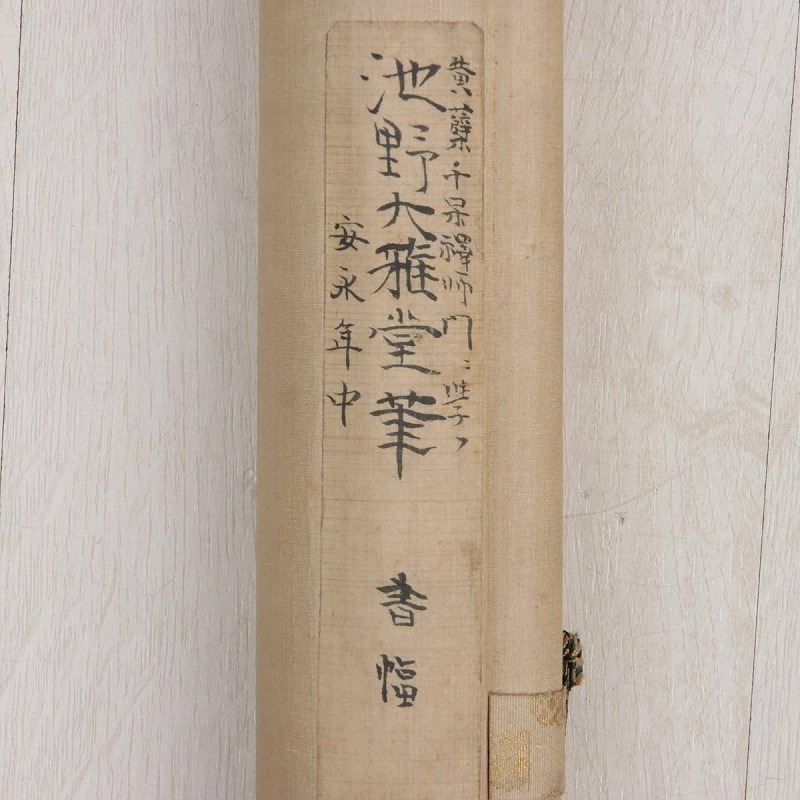 黄蘗千呆禅師門ニ学フ
池野大雅堂筆 書幅
安永年中